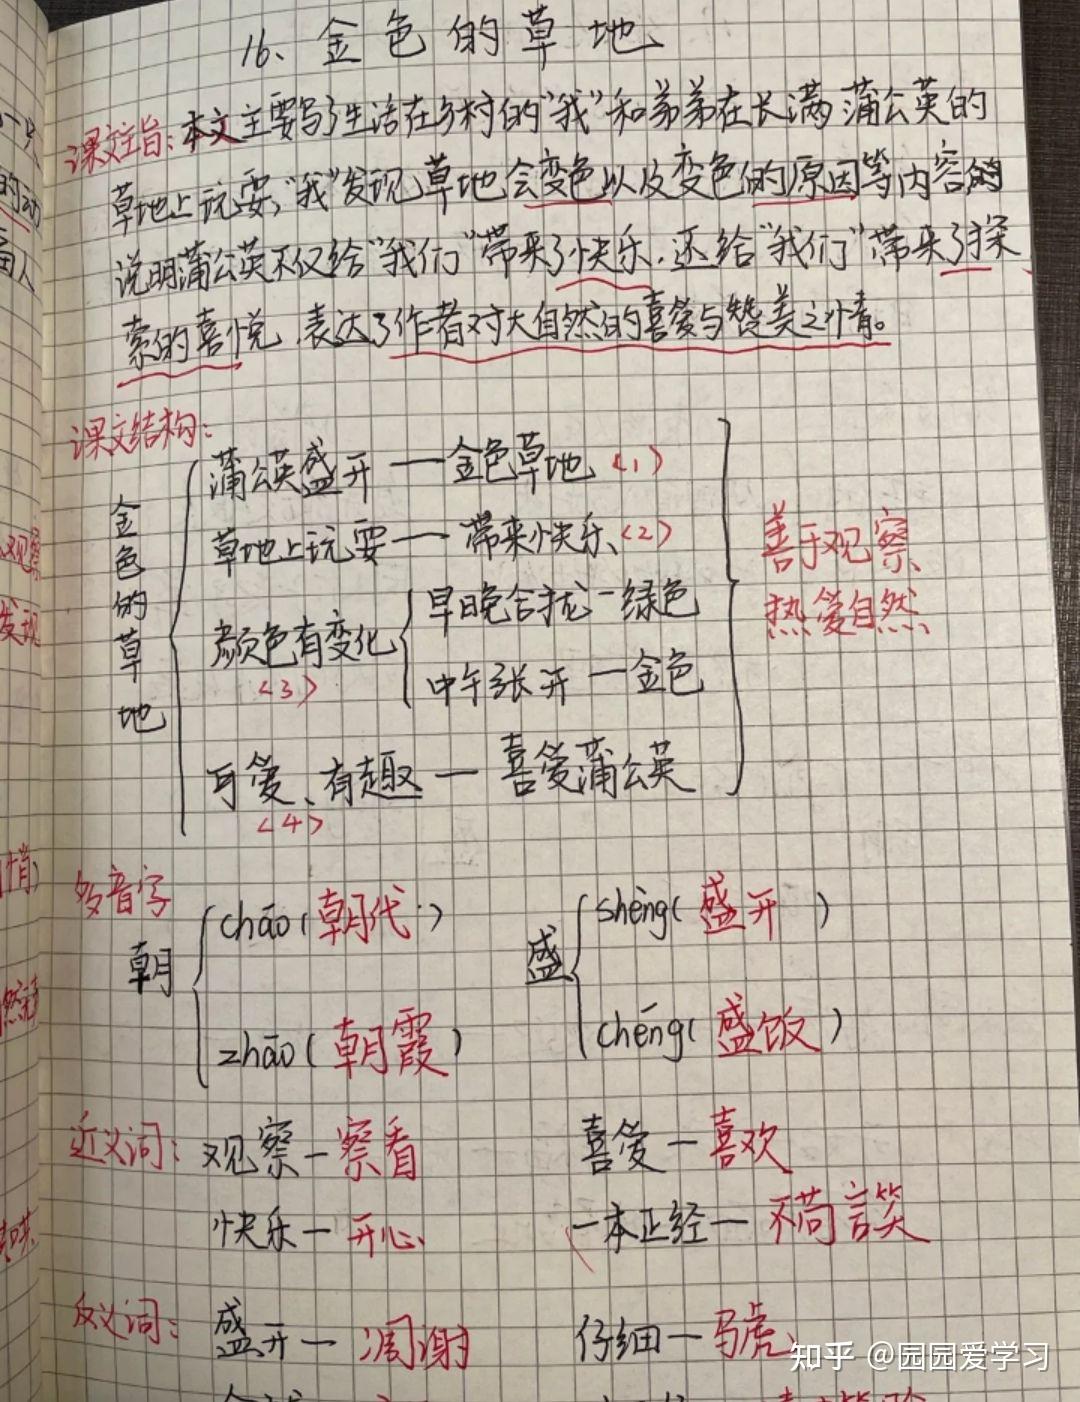 16、金色的草地
课文主旨：本文主要写了生活在乡村的“我”和弟弟在长满蒲公英的
草地上玩耍，“我”发现草地会变色以及变色的原因等内容的
说明蒲公英不仅给“我们”带来了快乐，还给“我们”带来了探
索的喜悦，表达了作者对大自然的喜爱与赞美之情。
课文结构：
金色的草地
蒲公英盛开——金色草地<1>
草地上玩耍——带来快乐<2>
颜色有变化<3>
早晚合拢－绿色
中午张开－金色
可爱、有趣－喜爱蒲公英
<4>
善于观察
热爱自然
多音字
朝
cháo(朝代)
zhāo(朝霞)
盛
shèng(盛开)
chéng(盛饭)
近义词：观察－察看 喜爱－喜欢
快乐－开心 一本正经－不苟言笑
反义词：盛开－凋谢 仔细－马虎
知乎 @园园爱学习